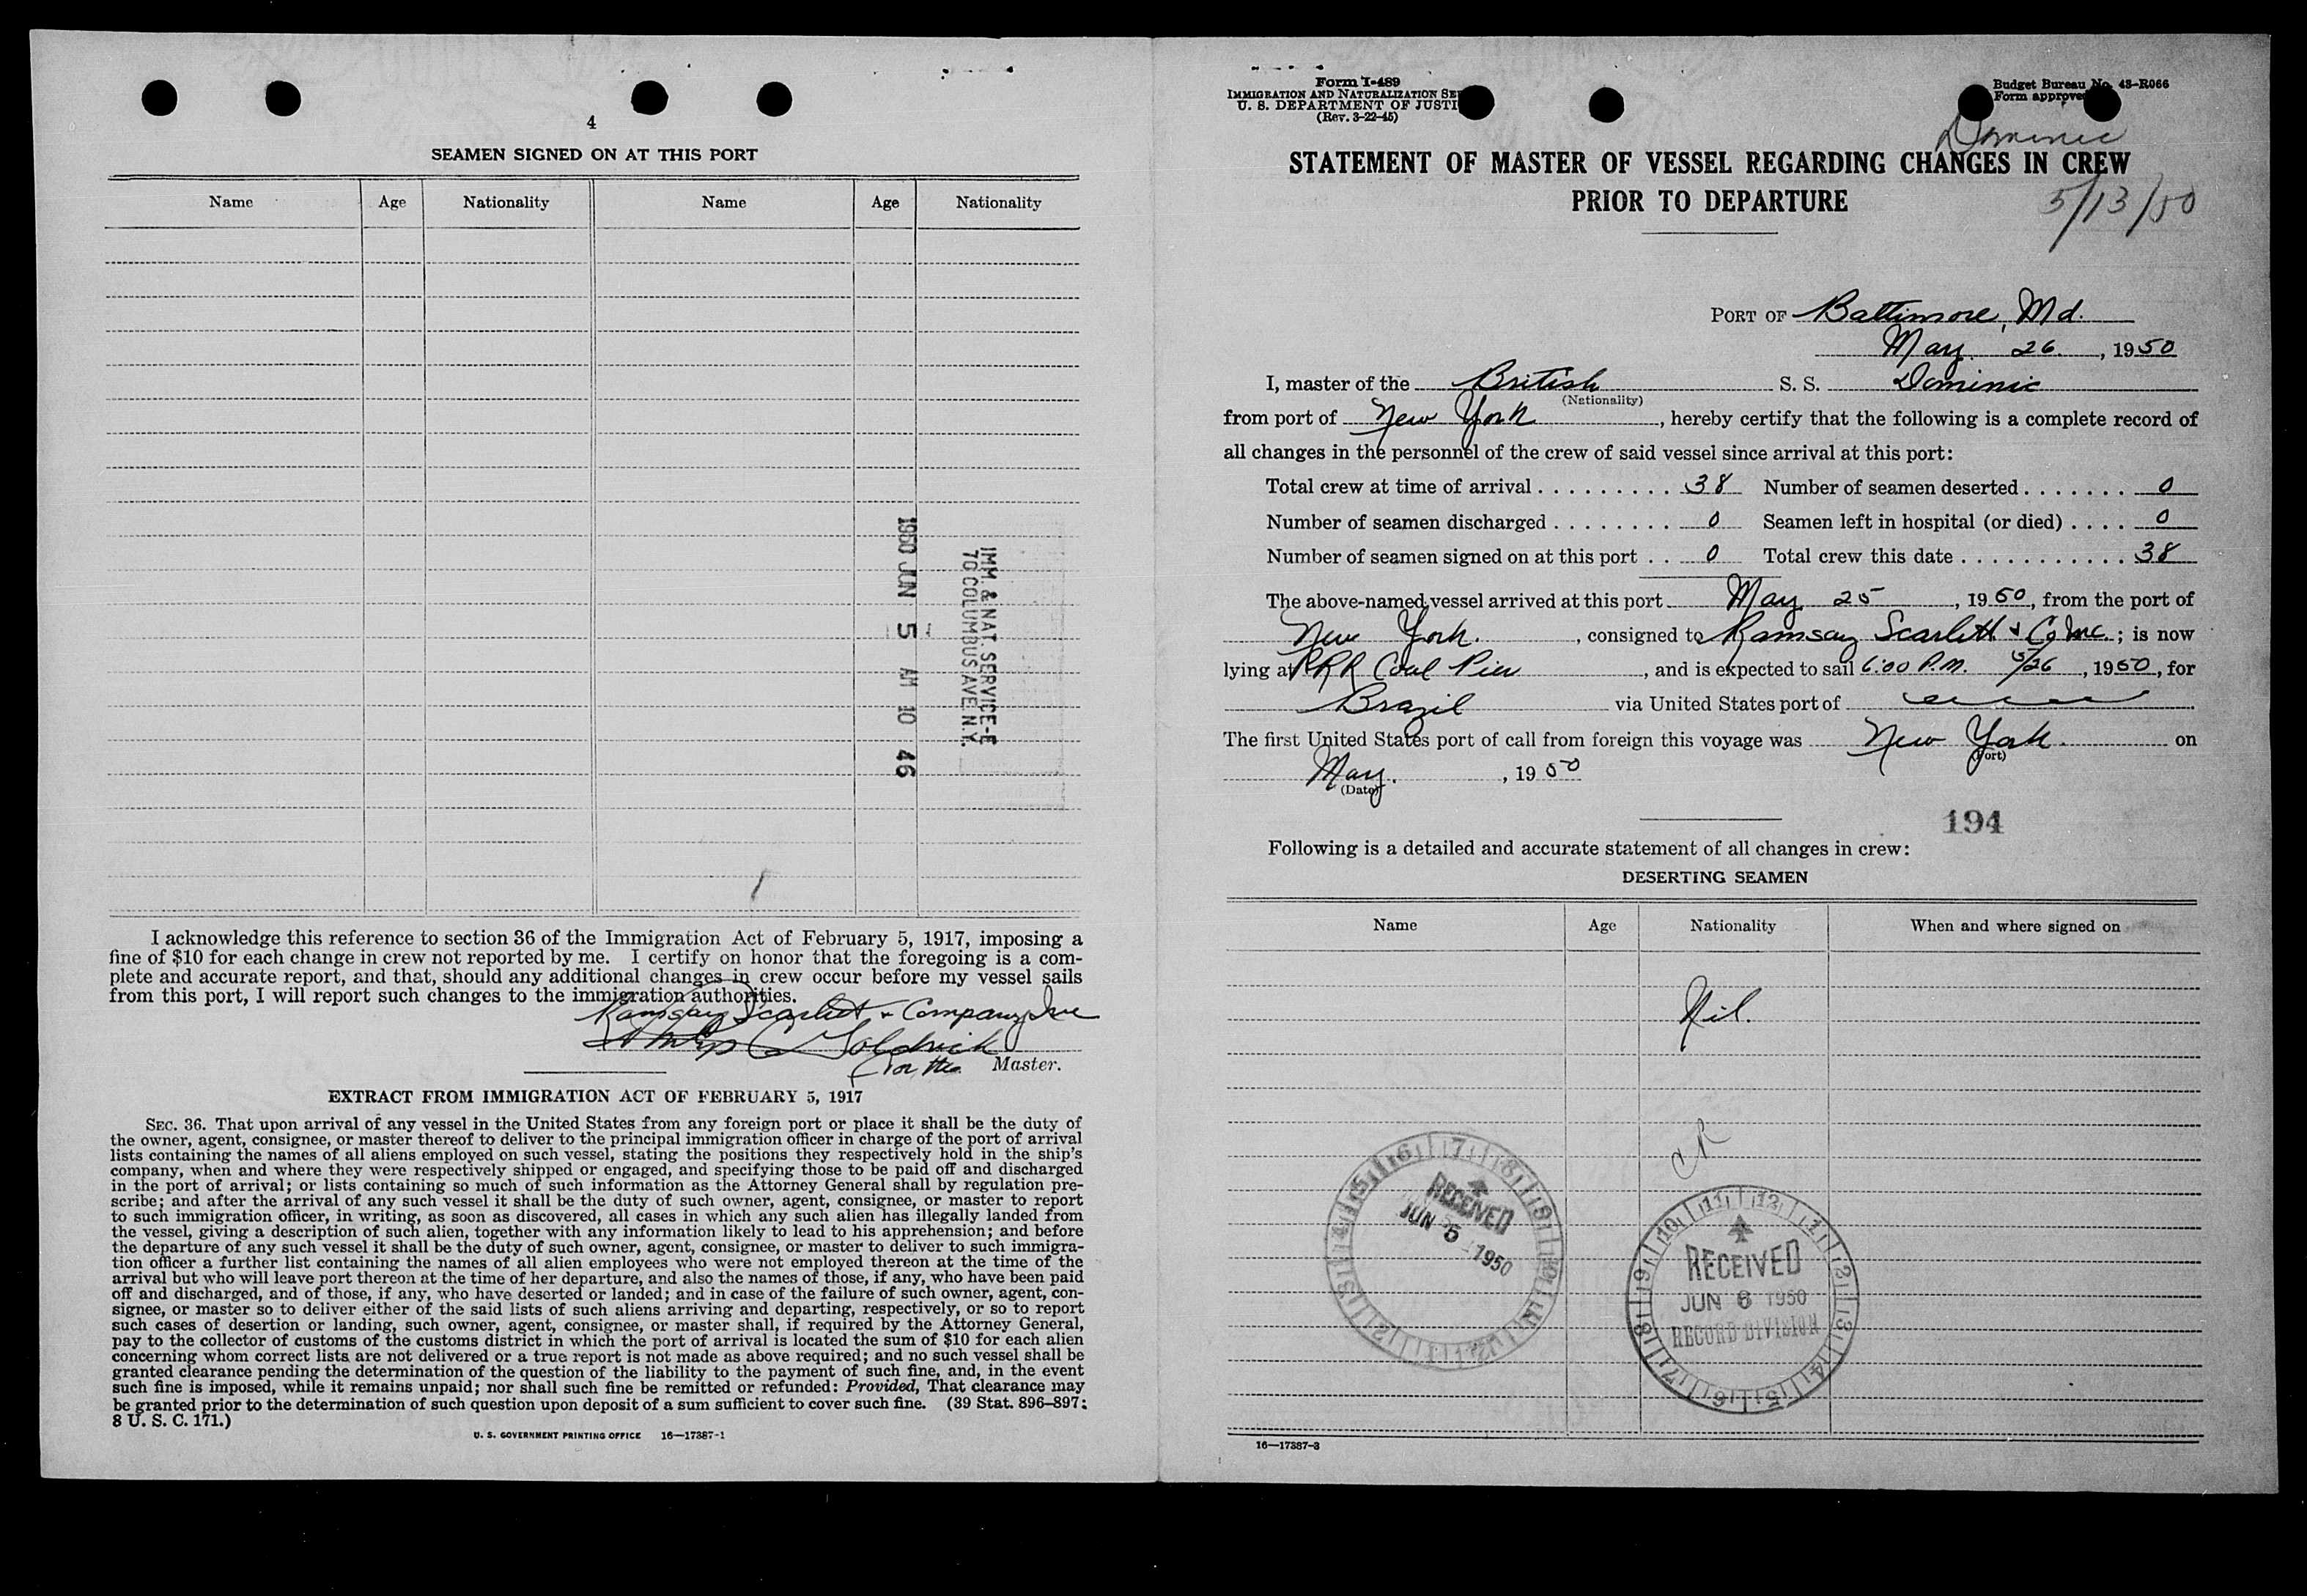 4
SEAMEN SIGNED ON AT THIS PORT
Name Age Nationality Name Age Nationality
1950 JUN 5 AM 10 46
IMM. & NAT. SERVICE-E
70 COLUMBUS AVE. N.Y.
I acknowledge this reference to section 36 of the Immigration Act of February 5, 1917, imposing a
fine of $10 for each change in crew not reported by me. I certify on honor that the foregoing is a com-
plete and accurate report, and that, should any additional changes in crew occur before my vessel sails
from this port, I will report such changes to the immigration authorities.
Ramsay Scarlett & Company Inc
Goldrick
for the Master.
EXTRACT FROM IMMIGRATION ACT OF FEBRUARY 5, 1917
SEC. 36. That upon arrival of any vessel in the United States from any foreign port or place it shall be the duty of
the owner, agent, consignee, or master thereof to deliver to the principal immigration officer in charge of the port of arrival
lists containing the names of all aliens employed on such vessel, stating the positions they respectively hold in the ship's
company, when and where they were respectively shipped or engaged, and specifying those to be paid off and discharged
in the port of arrival; or lists containing so much of such information as the Attorney General shall by regulation pre-
scribe; and after the arrival of any such vessel it shall be the duty of such owner, agent, consignee, or master to report
to such immigration officer, in writing, as soon as discovered, all cases in which any such alien has illegally landed from
the vessel, giving a description of such alien, together with any information likely to lead to his apprehension; and before
the departure of any such vessel it shall be the duty of such owner, agent, consignee, or master to deliver to such immigra-
tion officer a further list containing the names of all alien employees who were not employed thereon at the time of the
arrival but who will leave port thereon at the time of her departure, and also the names of those, if any, who have been paid
off and discharged, and of those, if any, who have deserted or landed; and in case of the failure of such owner, agent, con-
signee, or master so to deliver either of the said lists of such aliens arriving and departing, respectively, or so to report
such cases of desertion or landing, such owner, agent, consignee, or master shall, if required by the Attorney General,
pay to the collector of customs of the customs district in which the port of arrival is located the sum of $10 for each alien
concerning whom correct lists are not delivered or a true report is not made as above required; and no such vessel shall be
granted clearance pending the determination of the question of the liability to the payment of such fine, and, in the event
such fine is imposed, while it remains unpaid; nor shall such fine be remitted or refunded: Provided, That clearance may
be granted prior to the determination of such question upon deposit of a sum sufficient to cover such fine. (39 Stat. 896-897;
8 U. S. C. 171.)
U. S. GOVERNMENT PRINTING OFFICE 16—17387-1
Form I-489
IMMIGRATION AND NATURALIZATION SE
U. S. DEPARTMENT OF JUSTI
(Rev. 3-22-45)
Budget Bureau No. 43-R066
Form approve
Dominic
STATEMENT OF MASTER OF VESSEL REGARDING CHANGES IN CREW
PRIOR TO DEPARTURE
5/13/50
PORT OF Baltimore, Md.
May 26, 1950
I, master of the British S. S. Dominic
(Nationality)
from port of New York, hereby certify that the following is a complete record of
all changes in the personnel of the crew of said vessel since arrival at this port:
Total crew at time of arrival . . . . . . . . . 38 Number of seamen deserted . . . . . . . 0
Number of seamen discharged . . . . . . . . 0 Seamen left in hospital (or died) . . . . 0
Number of seamen signed on at this port . . 0 Total crew this date . . . . . . . . . . . 38
The above-named vessel arrived at this port May 25, 1950, from the port of
New York., consigned to Ramsay Scarlett & Co Inc.; is now
lying at PRR Coal Pier, and is expected to sail 6:00 P.M. 5/26, 1950, for
Brazil via United States port of
The first United States port of call from foreign this voyage was New York. on
(Port)
May., 1950
(Date)
194
Following is a detailed and accurate statement of all changes in crew:
DESERTING SEAMEN
Name Age Nationality When and where signed on
Nil.
CR
RECEIVED
JUN 5 1950
RECEIVED
JUN 6 1950
RECORD DIVISION
16—17387-3